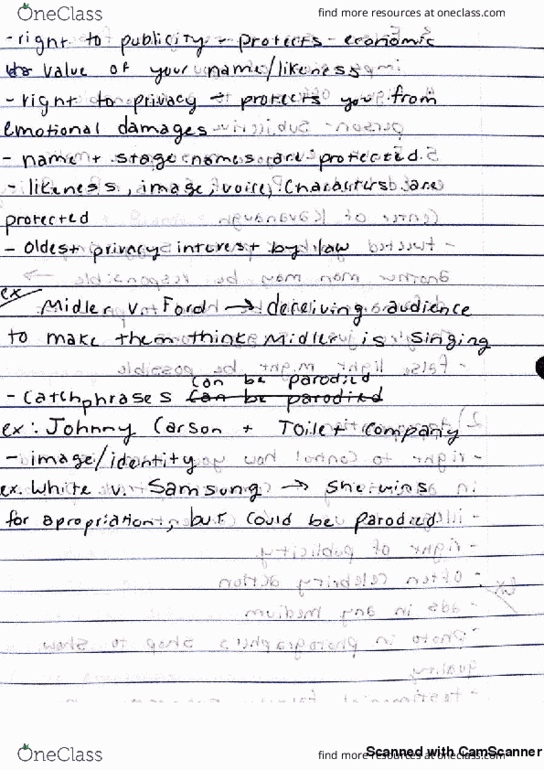 OneClass
find more resources at oneclass.com
- right to publicity - protects economic
value of your name/likeness
- right to privacy → protects you from
emotional damages
- name + stage names are protected
- likeness, image, voice, characters are
protected
- oldest privacy interest by law
ex Midler v. Ford → deceiving audience
to make them think Midler is singing
can be parodied
- catchphrases can be parodied
ex: Johnny Carson + Toilet company
- image/identity
ex. White v. Samsung → she wins
for apropriation, but could be parodied
OneClass
find more resources at oneclass.com
Scanned with CamScanner